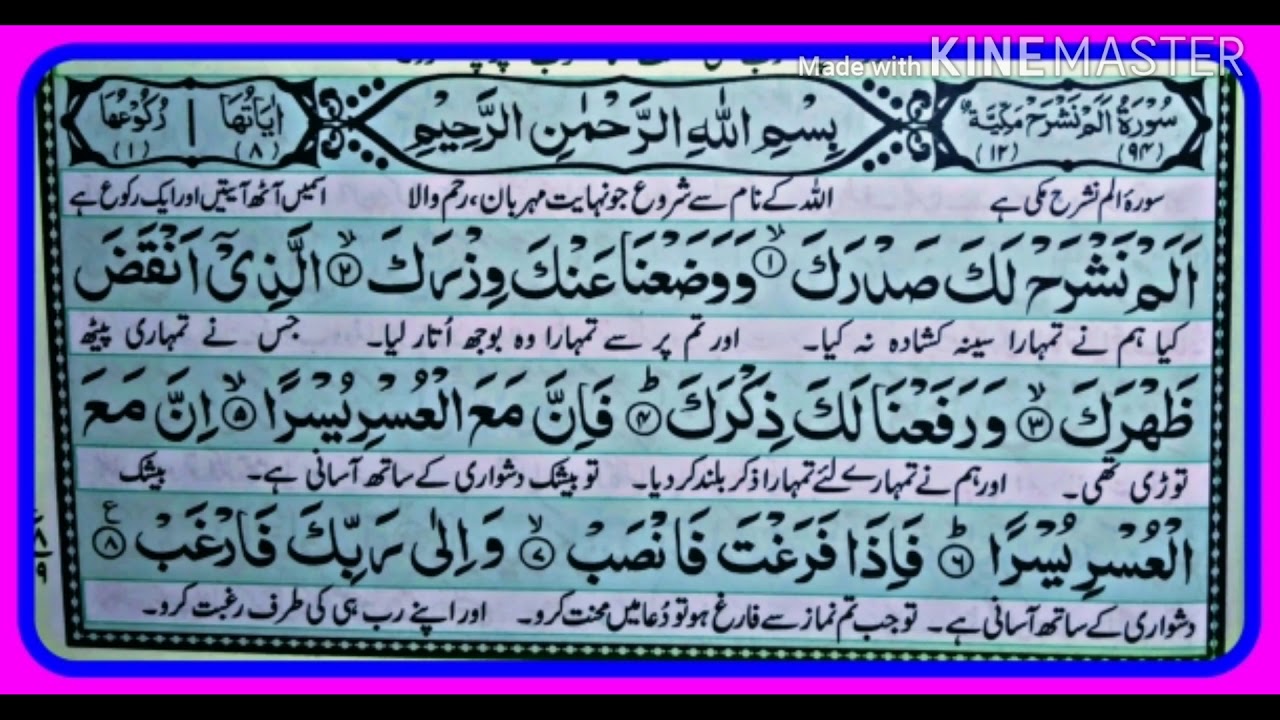 Made with KINEMASTER
سُوْرَةُ اَلَمْ نَشْرَحْ مَكِّيَّةٌ بِسْمِ اللهِ الرَّحْمٰنِ الرَّحِيْمِ اٰيَاتُهَا رُكُوْعُهَا
(۹۴) (۱۲) (۸) (۱)
سورۂ الم نشرح مکی ہے اللہ کے نام سے شروع جو نہایت مہربان، رحم والا اسمیں آٹھ آیتیں اور ایک رکوع ہے
اَلَمْ نَشْرَحْ لَكَ صَدْرَكَ ۙ﴿۱﴾ وَوَضَعْنَا عَنْكَ وِزْرَكَ ۙ﴿۲﴾ الَّذِىْٓ اَنْقَضَ
کیا ہم نے تمہارا سینہ کشادہ نہ کیا۔ اور تم پر سے تمہارا وہ بوجھ اُتار لیا۔ جس نے تمہاری پیٹھ
ظَهْرَكَ ۙ﴿۳﴾ وَرَفَعْنَا لَكَ ذِكْرَكَ ؕ﴿۴﴾ فَاِنَّ مَعَ الْعُسْرِ يُسْرًا ۙ﴿۵﴾ اِنَّ مَعَ
توڑی تھی۔ اور ہم نے تمہارے لئے تمہارا ذکر بلند کر دیا۔ تو بیشک دشواری کے ساتھ آسانی ہے۔ بیشک
الْعُسْرِ يُسْرًا ؕ﴿۶﴾ فَاِذَا فَرَغْتَ فَانْصَبْ ۙ﴿۷﴾ وَاِلٰى رَبِّكَ فَارْغَبْ ﴿۸﴾ ع
دشواری کے ساتھ آسانی ہے۔ تو جب تم نماز سے فارغ ہو تو دُعا میں محنت کرو۔ اور اپنے رب ہی کی طرف رغبت کرو۔